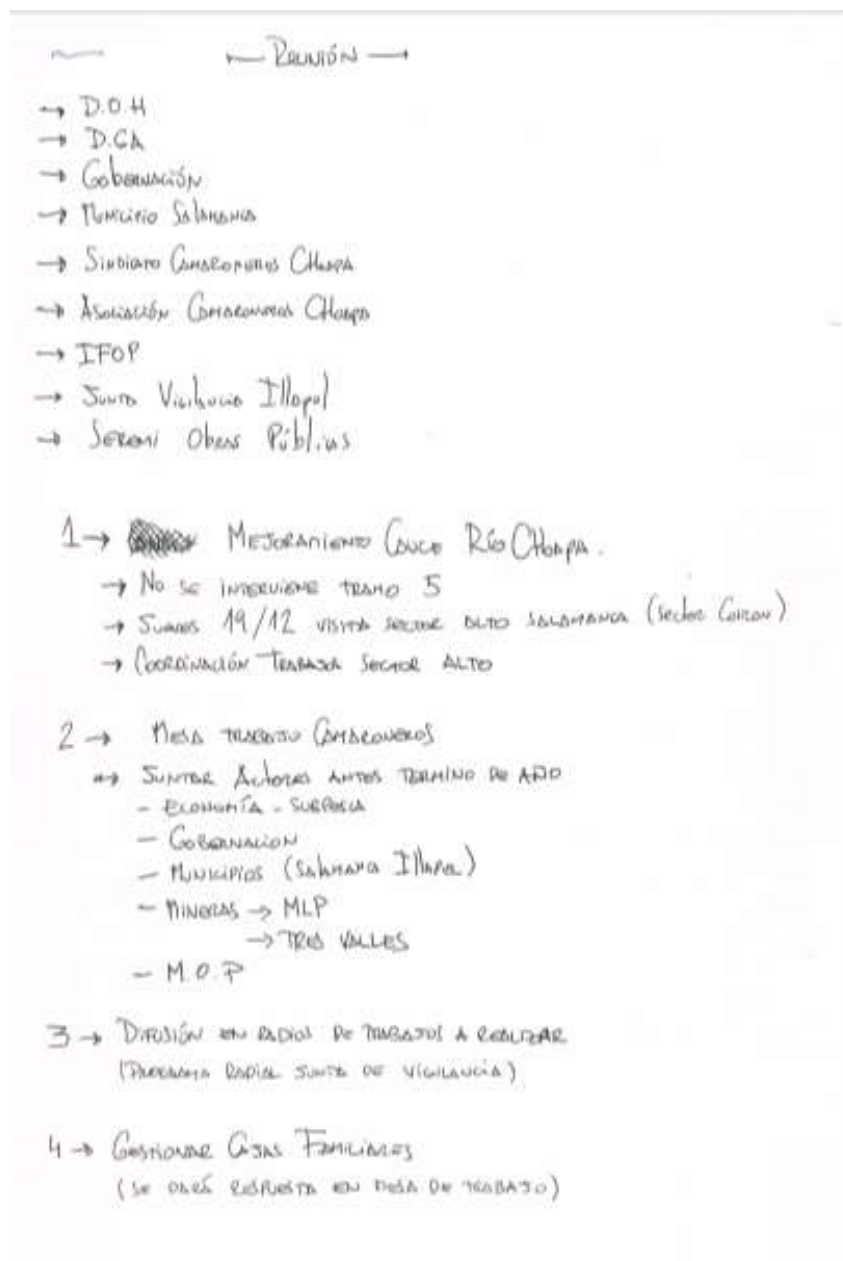 ← Reunión →
→ D.O.H
→ D.GA
→ Gobernación
→ Municipio Salamanca
→ Sindicato Camaroneros Choapa
→ Asociación Camaroneros Choapa
→ IFOP
→ Junta Vigilancia Illapel
→ Seremi Obras Públicas
1 → Mejoramiento Cauce Río Choapa.
→ No se interviene tramo 5
→ 19/12 visita sector alto Salamanca (sector Coiron)
→ Coordinación Trabajos Sector Alto
2 → Mesa trabajo Camaroneros
→ Juntar Actores antes termino de año
- Economía - Subpesca
- Gobernacion
- Municipios (Salamanca Illapel)
- Mineras → MLP
→ Tres Valles
- M.O.P
3 → Difusión en radios de trabajos a realizar
(Programa Radial Junta de Vigilancia)
4 → Gestionar Cajas Familiares
(se dará respuesta en mesa de trabajo)